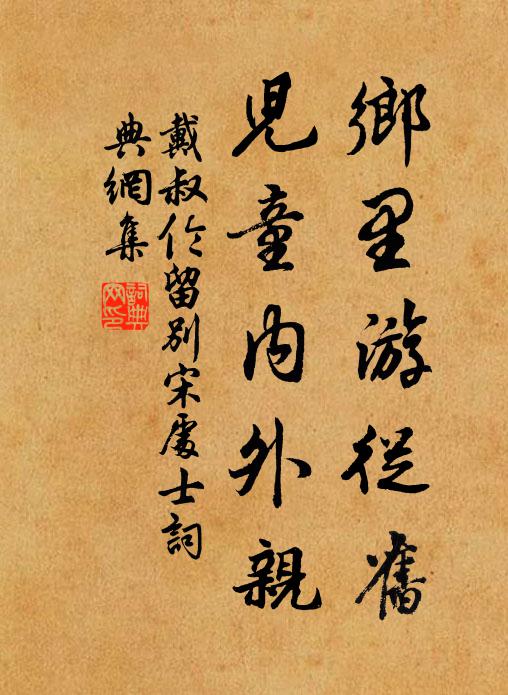 鄉里游從舊
兒童內外親
戴叔伦留別宋處士詞
典網集
詞典
网印